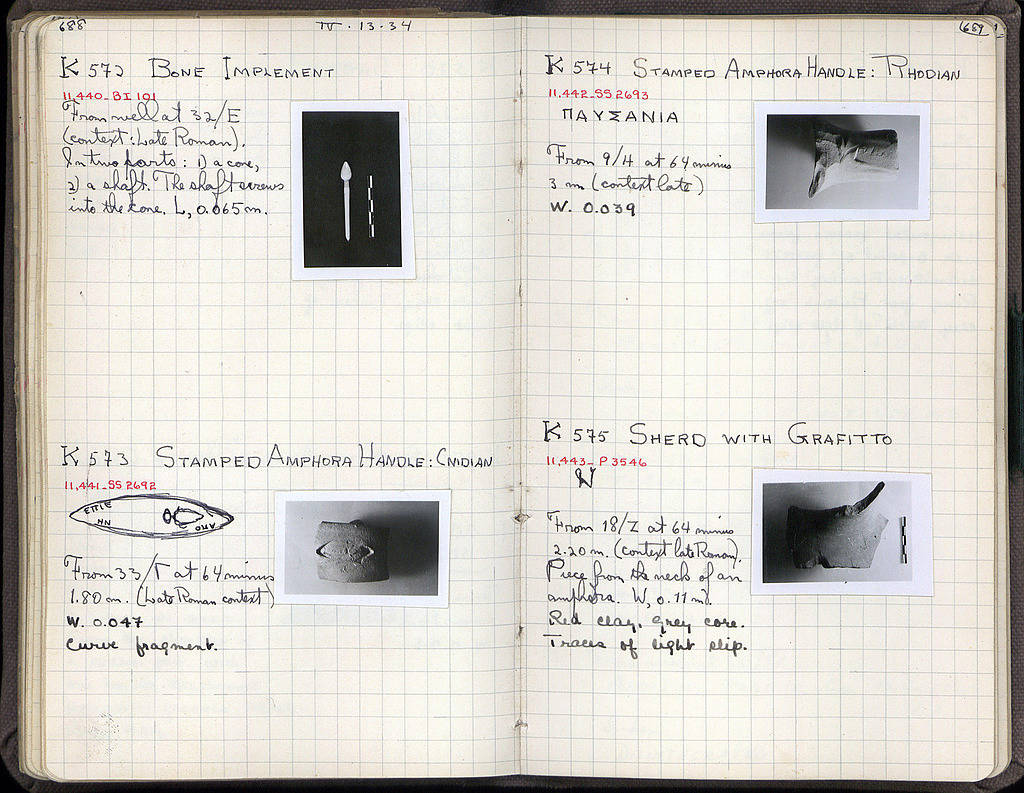 688
IV . 13 . 34
K 572 BONE IMPLEMENT
11,440_BI 101
From well at 32/E
(context: Late Roman).
In two parts: 1) a cone,
2) a shaft. The shaft screws
into the cone. L, 0.065 m.
K 573 STAMPED AMPHORA HANDLE: CNIDIAN
11,441_SS 2692
ΕΠΙΕ
From 33/Γ at 64 minus
1.80 m. (Late Roman context)
W. 0.047
curve fragment.
689
K 574 STAMPED AMPHORA HANDLE: RHODIAN
11,442_SS 2693
ΠΑΥΣΑΝΙΑ
From 9/Η at 64 minus
3 m (context late)
W. 0.039
K 575 SHERD WITH GRAFITTO
11,443_P 3546
From 18/Z at 64 minus
2.20 m. (context late Roman).
Piece from the neck of an
amphora. W, 0.11 m.
Red clay, grey core.
Traces of light slip.